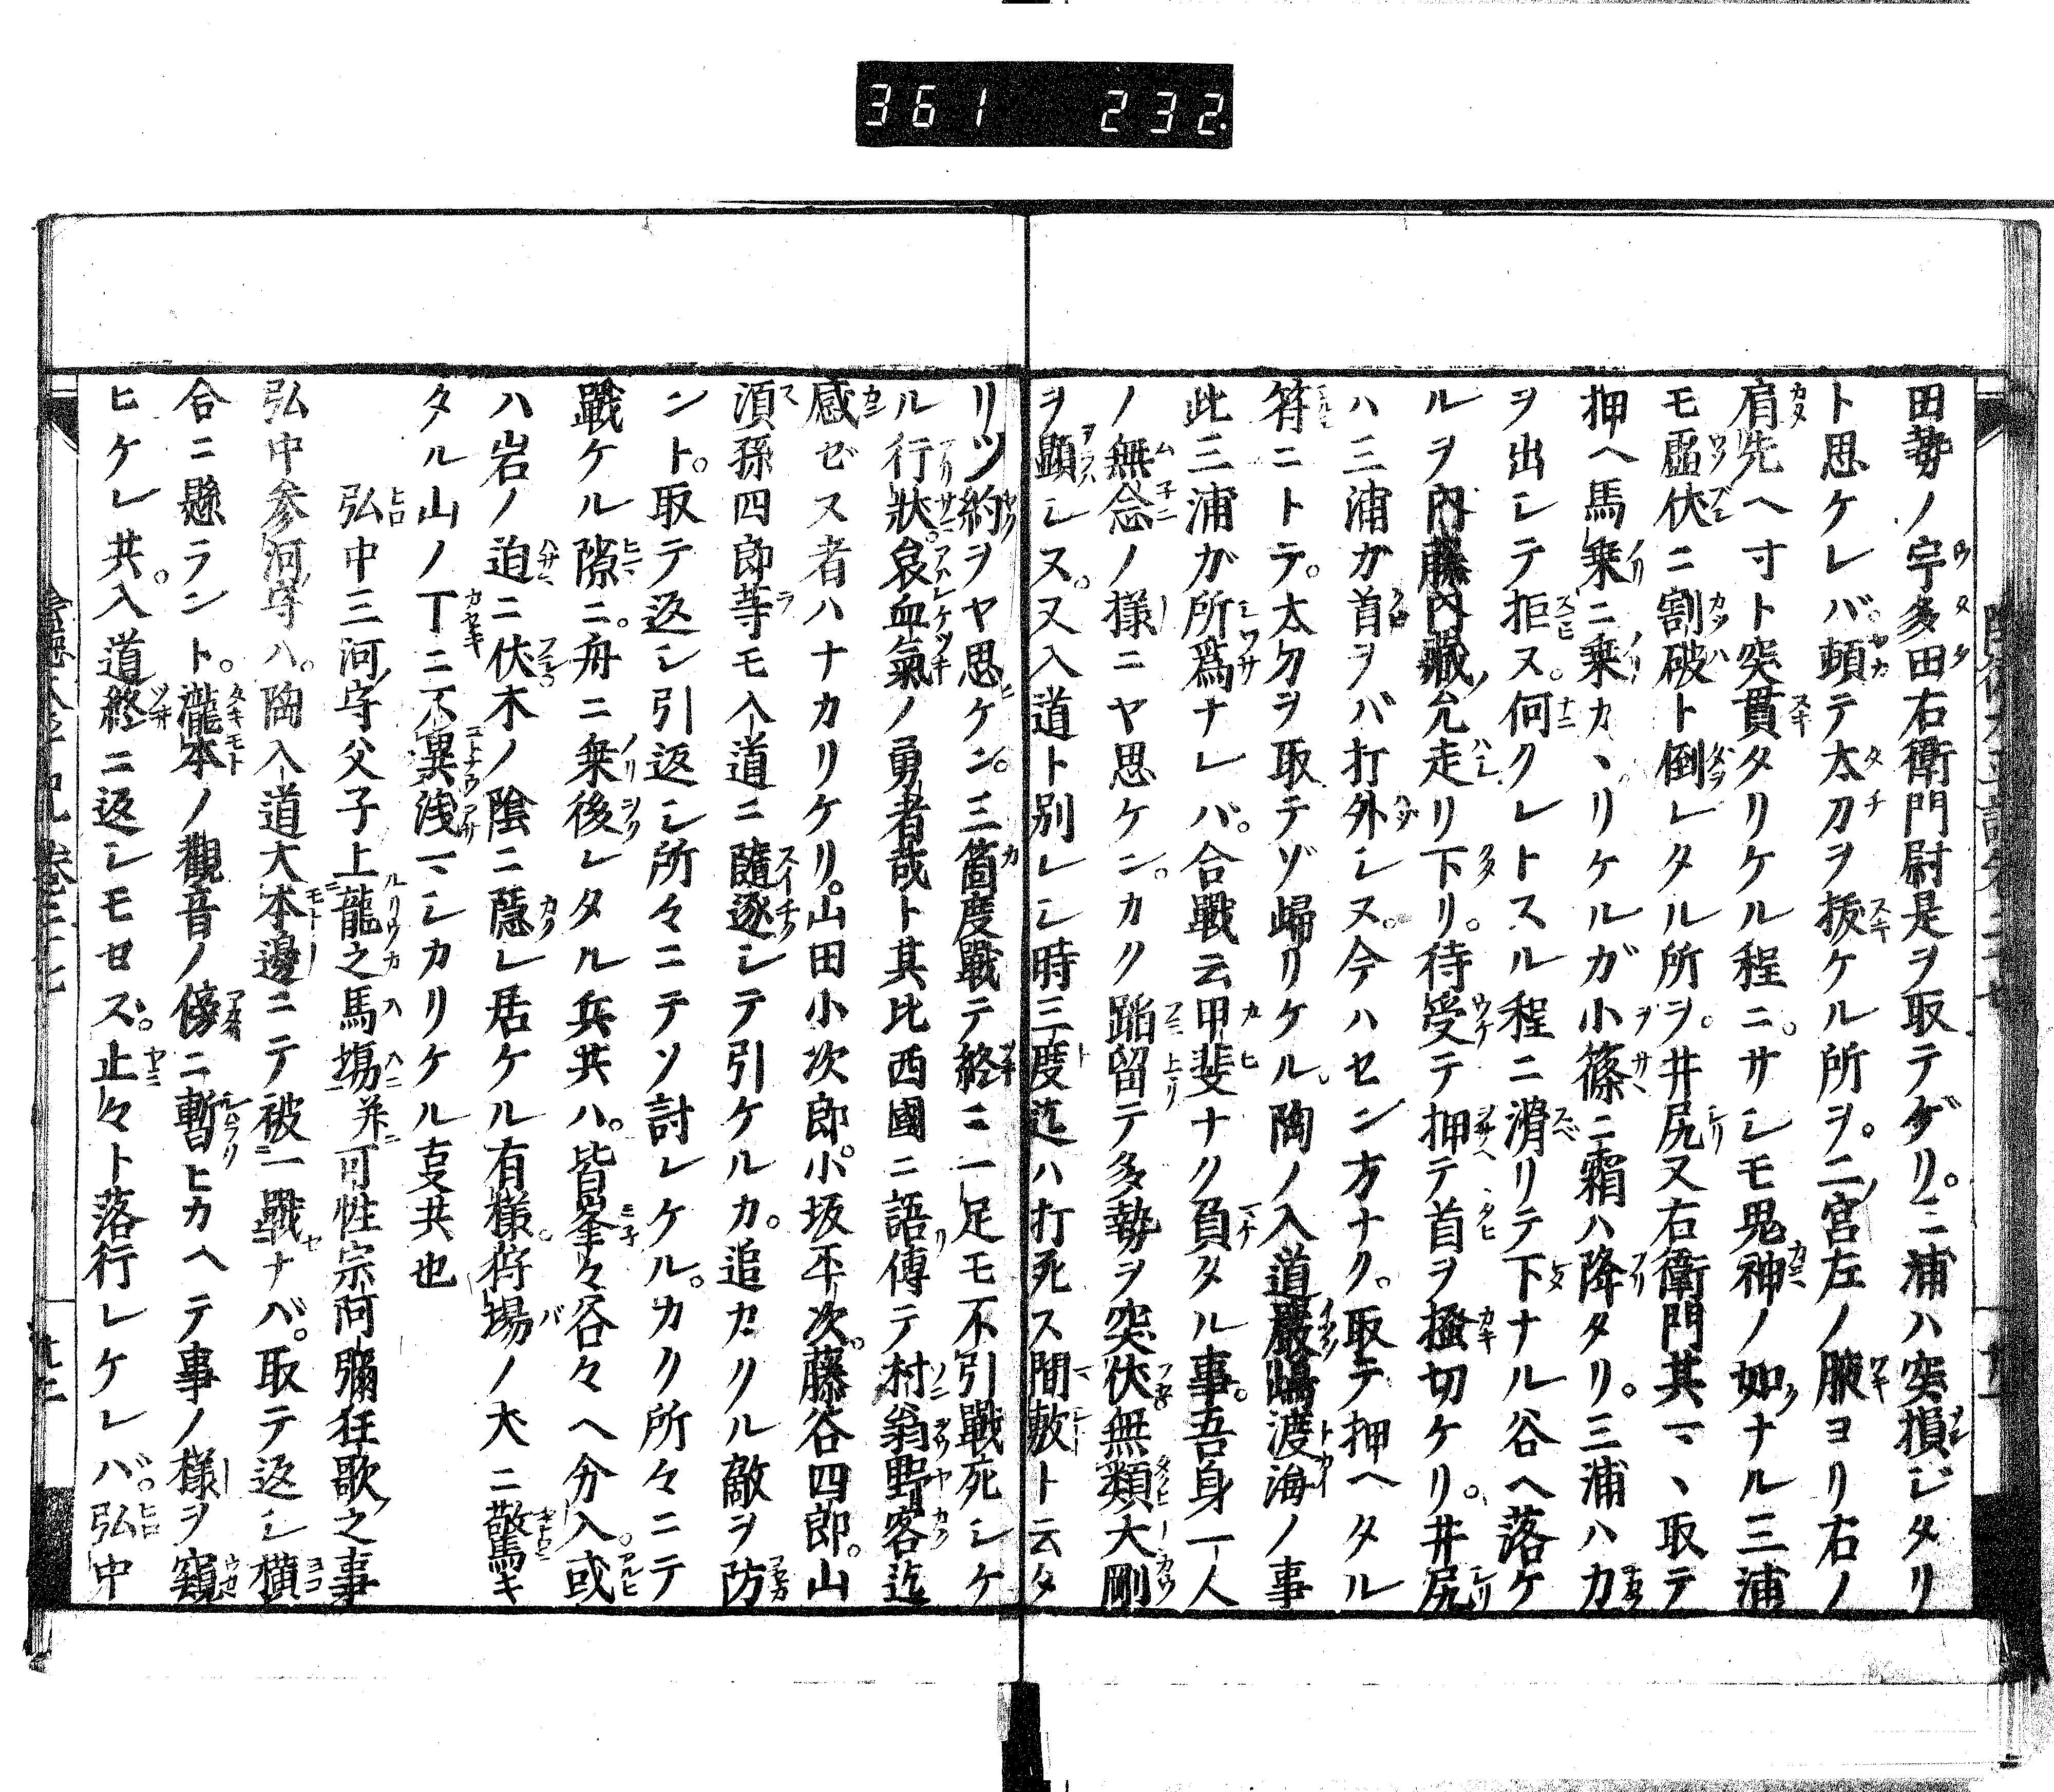 361 232.
田勢ノ宇多田右衛門尉是ヲ取テゲリ。三浦ハ突損ジタリ
ト思ケレバ。頓テ太刀ヲ抜ケル所ヲ。二宮左ノ腋ヨリ右ノ
肩先ヘ寸ト突貫タリケル程ニ。サシモ鬼神ノ如ナル三浦
モ虚伏ニ割破ト倒レタル所ヲ。井尻又右衛門其マヽ取テ
押ヘ馬乗ニ乗カヽリケルガ小篠ニ霜ハ降タリ。三浦ハカ
ヲ出シテ拒ス。何クレトスル程ニ滑リテ下ナル谷ヘ落ケ
ルヲ内藤内蔵允走リ下リ。待受テ押テ首ヲ掻切ケリ。井尻
ハ三浦ガ首ヲバ打外シヌ。今ハセン方ナク。取テ押ヘタル
符ニトテ。太刀ヲ取テゾ歸リケル。陶ノ入道嚴嶋渡海ノ事
此三浦ガ所爲ナレバ。合戰云甲斐ナク負タル事。吾身一人
ノ無念ノ様ニヤ思ケン。カク蹈留テ多勢ヲ突伏無類大剛
ヲ顕シヌ。又入道ト別レシ時三度迄ハ打死ス間敷ト云タ
リツ約ヲヤ思ケン。三箇度戰テ終ニ一足モ不引戰死シケ
ル行狀。哀血氣ノ勇者哉ト其比西國ニ語傳テ村翁野客迄
感ゼス者ハナカリケリ。山田小次郎。小坂平次。藤谷四郎。山
須孫四郎等モ入道ニ隨逐シテ引ケルカ。追カクル敵ヲ防
ント。取テ返シ引返シ所々ニテソ討レケル。カク所々ニテ
戰ケル隙ニ。舟ニ乗後レタル兵共ハ。皆峯々谷々ヘ分入。或
ハ岩ノ迫ニ伏木ノ陰ニ隱レ居ケル有様。狩場ノ大ニ驚キ
タル山ノ丁ニ不異浅マシカリケル叓共也
弘中三河守父子上龍之馬場并可性宗阿彌狂歌之事
弘中参河守ハ。陶入道大本邊ニテ被一戰ナバ。取テ返シ横
合ニ懸ラント。瀧本ノ觀音ノ傍ニ暫ヒカヘテ事ノ様ヲ窺
ヒケレ共。入道終ニ返シモセズ。止々ト落行レケレバ。弘中